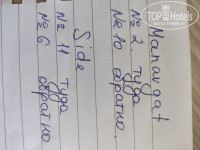 TopHotels
Манавгат
№ 2 туда
№ 10 обратно.
Side
№ 11 туда
№ 6 обратно